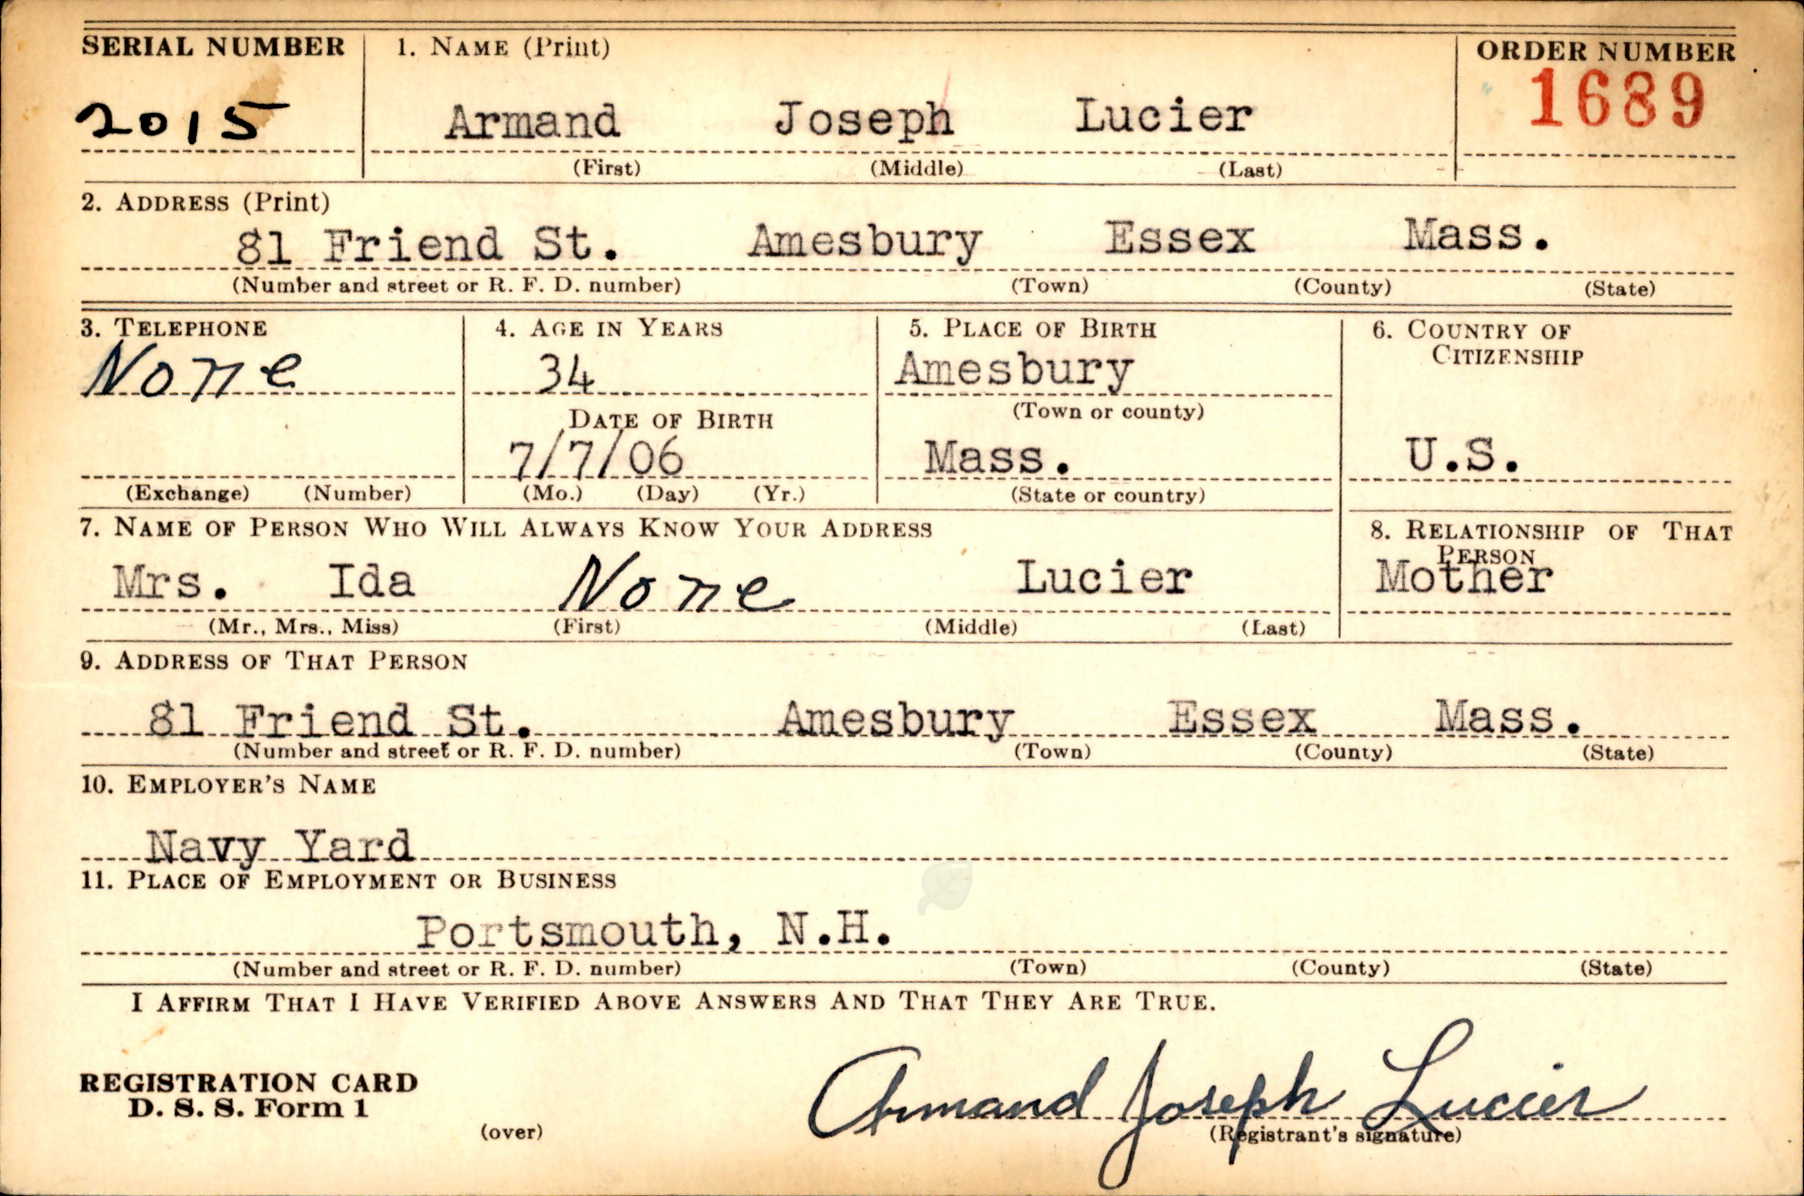 SERIAL NUMBER 1. NAME (Print) ORDER NUMBER
2015 Armand Joseph Lucier 1689
(First) (Middle) (Last)
2. ADDRESS (Print)
81 Friend St. Amesbury Essex Mass.
(Number and street or R. F. D. number) (Town) (County) (State)
3. TELEPHONE 4. AGE IN YEARS 5. PLACE OF BIRTH 6. COUNTRY OF
CITIZENSHIP
None 34 Amesbury
DATE OF BIRTH (Town or county)
7/7/06 Mass. U.S.
(Exchange) (Number) (Mo.) (Day) (Yr.) (State or country)
7. NAME OF PERSON WHO WILL ALWAYS KNOW YOUR ADDRESS 8. RELATIONSHIP OF THAT
PERSON
Mrs. Ida None Lucier Mother
(Mr., Mrs., Miss) (First) (Middle) (Last)
9. ADDRESS OF THAT PERSON
81 Friend St. Amesbury Essex Mass.
(Number and street or R. F. D. number) (Town) (County) (State)
10. EMPLOYER'S NAME
Navy Yard
11. PLACE OF EMPLOYMENT OR BUSINESS
Portsmouth, N.H.
(Number and street or R. F. D. number) (Town) (County) (State)
I AFFIRM THAT I HAVE VERIFIED ABOVE ANSWERS AND THAT THEY ARE TRUE.
REGISTRATION CARD
D. S. S. Form 1 Armand Joseph Lucier
(over) (Registrant's signature)